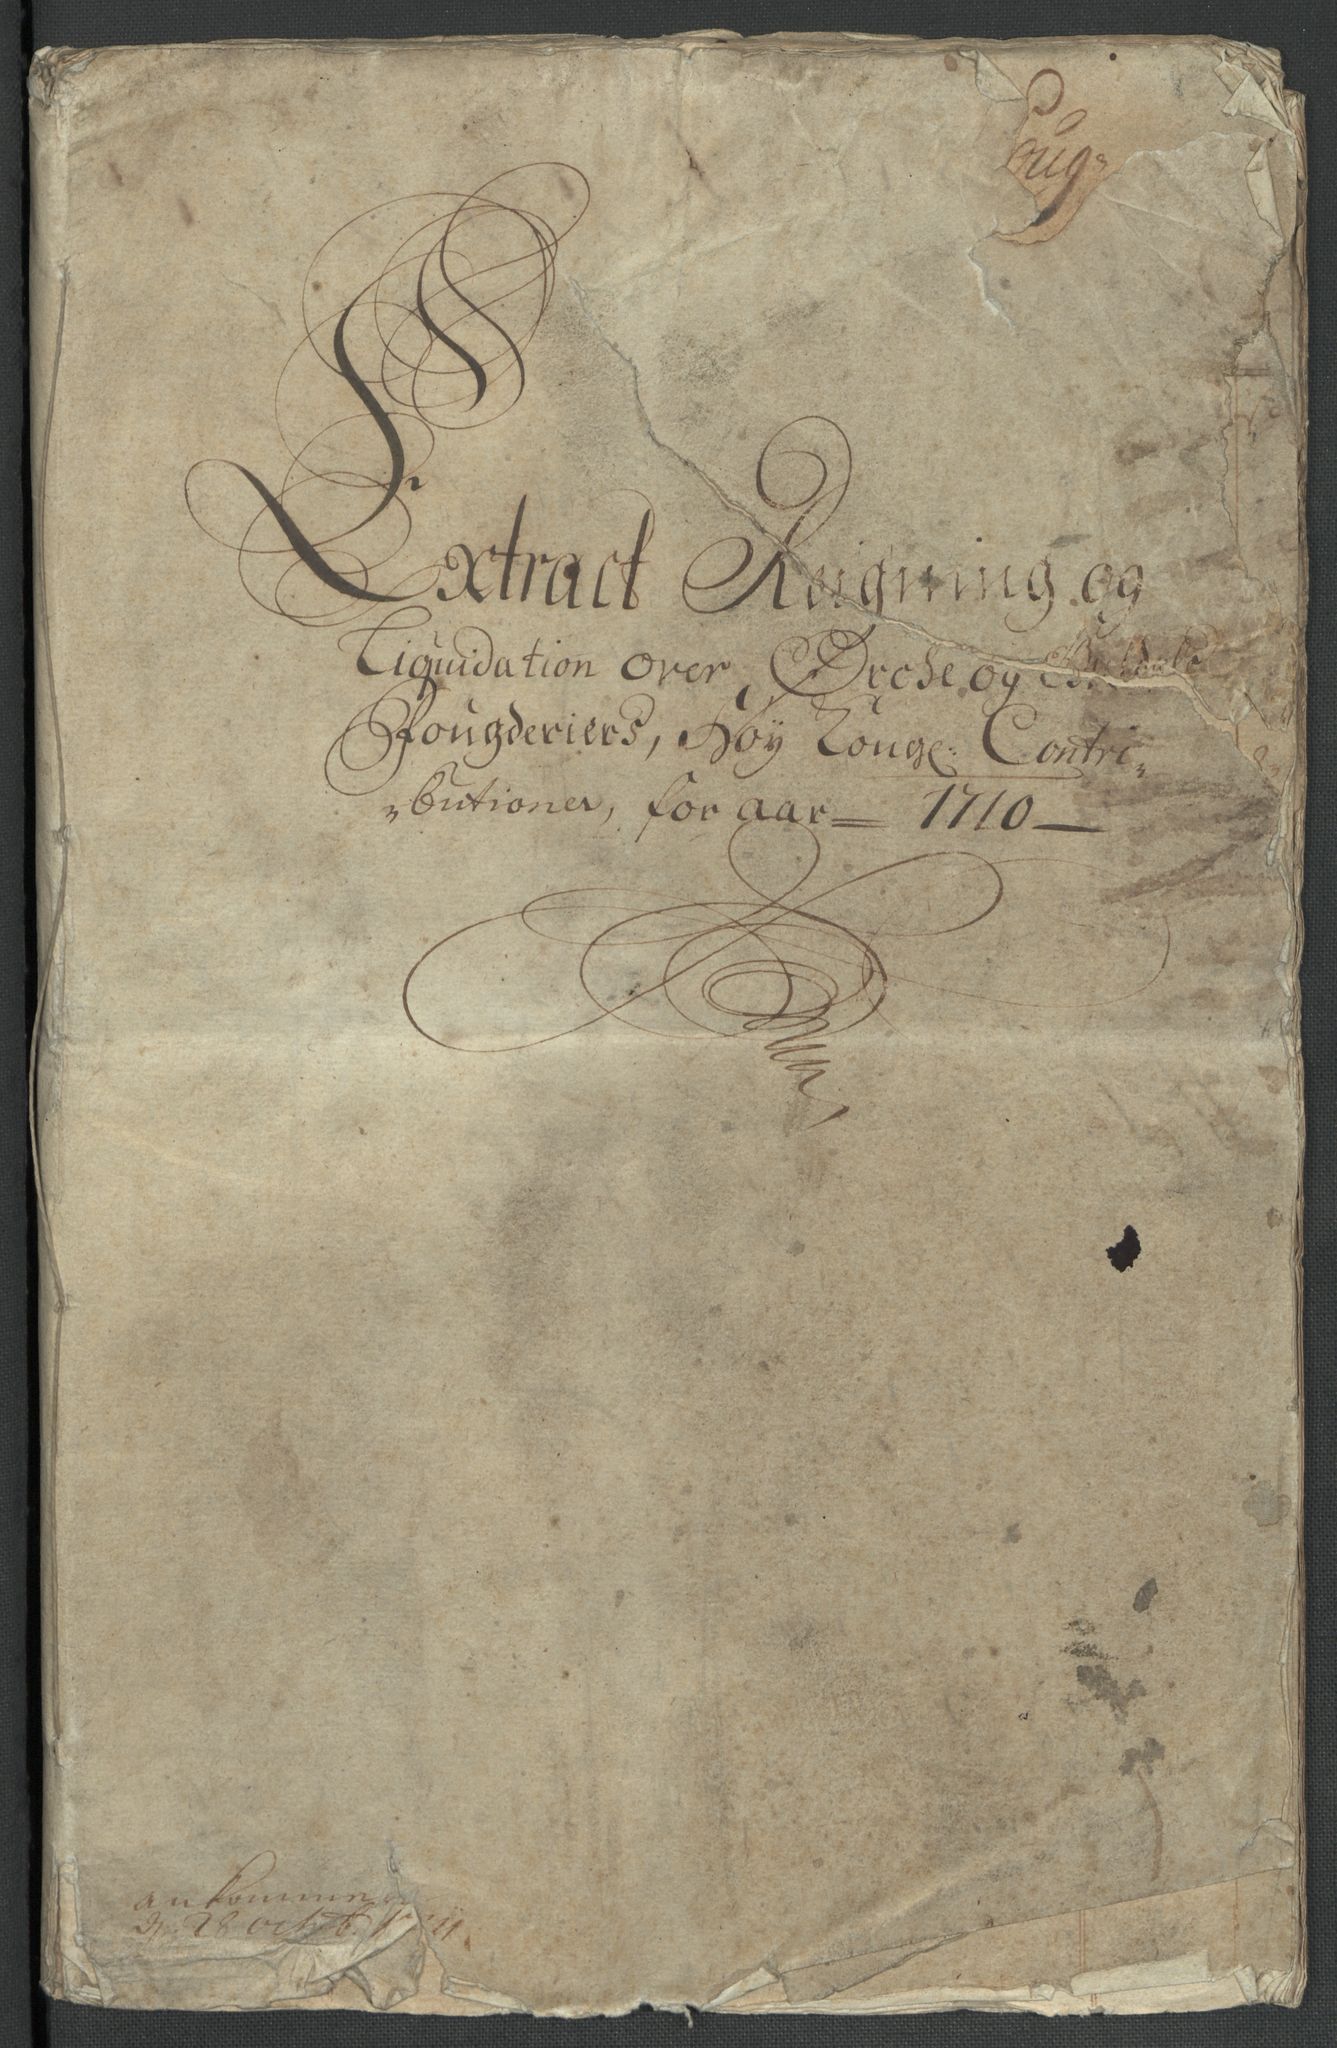 oug
Extract Reigning og
Liquidation over Ørche og
Fougderiers, Høy Konge: Contri-
-butioner, for aar 1710
ankommen
d. 28 octb.